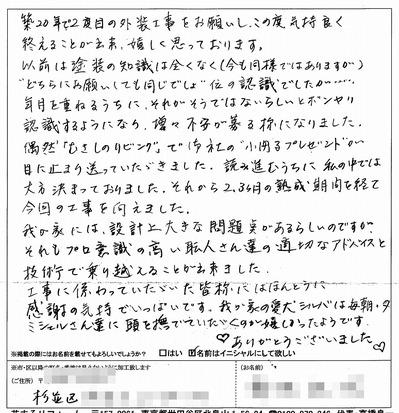 築20年で2度目の外装工事をお願いし、この度気持良く
終えることが出来、嬉しく思っております。
以前は塗装の知識は全くなく(今も同様ではありますが)
"どちらにお願いしても同じでしょ"位の認識でしたが……
年月を重ねるうちに、それがそうではないらしいとボンヤリ
認識するようになり、増々不安が募る様になりました。
偶然"むさしのリビング"で御社の"小冊子プレゼント"が
目に止まり送っていただきました。読み進むうちに私の中では
大方決まっておりました。それから2,3ヶ月の熟成期間を経て
今回の工事を向えました。
我が家には、設計上大きな問題点があるらしいのですが、
それもプロ意識の高い職人さん達の適切なアドバイスと
技術で乗り越えることが出来ました。
工事に係わっていただいた皆様にはほんとうに
感謝の気持でいっぱいです。我が家の愛犬シルバは毎朝・夕
ミシェルさん達に頭を撫でていただくのが嬉しかったようです。
ありがとうございました
※掲載の際にはお名前を載せてもよろしいでしょうか? □はい ☑名前はイニシャルにして欲しい
(ご住所) 〒
(お名前)
杉並区